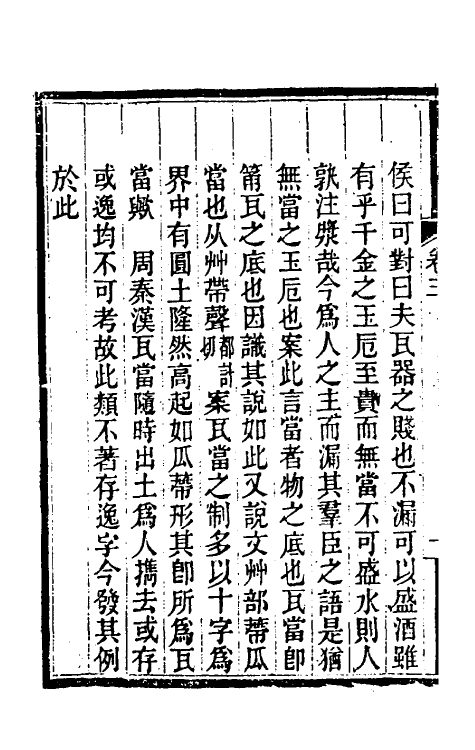 侯曰可對曰夫瓦器之賤也不漏可以盛酒雖
有乎千金之玉卮至貴而無當不可盛水則人
孰注漿哉今爲人之主而漏其羣臣之語是猶
無當之玉卮也案此言當者物之底也瓦當卽
筩瓦之底也因識其說如此又說文艸部蔕瓜
當也从艸帶聲都計切案瓦當之制多以十字爲
界中有圓土隆然高起如瓜蔕形其卽所爲瓦
當歟　周秦漢瓦當隨時出土爲人擕去或存
或逸均不可考故此類不著存逸字今發其例
於此
卷三